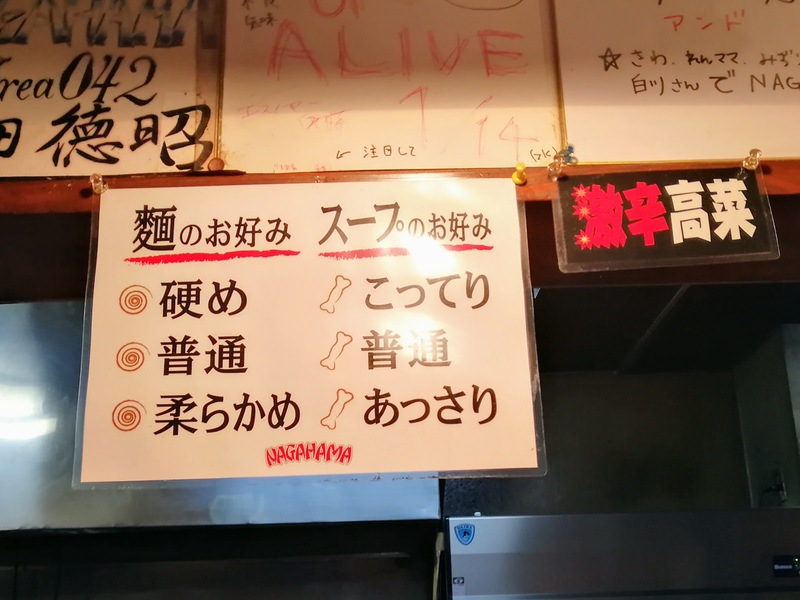 Area042
徳昭
ALIVE
1/14
注目して
アンド
☆さわ.れんママ.みず
白リさんで NAG
麺のお好み スープのお好み
硬め こってり
普通 普通
柔らかめ あっさり
NAGAHAMA
激辛高菜